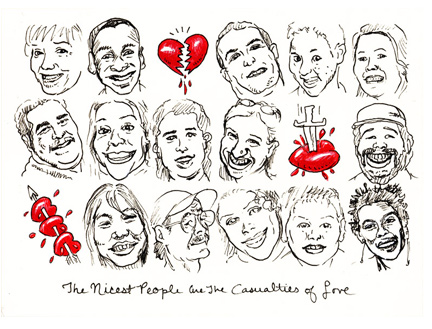 The Nicest People are The Casualties of Love